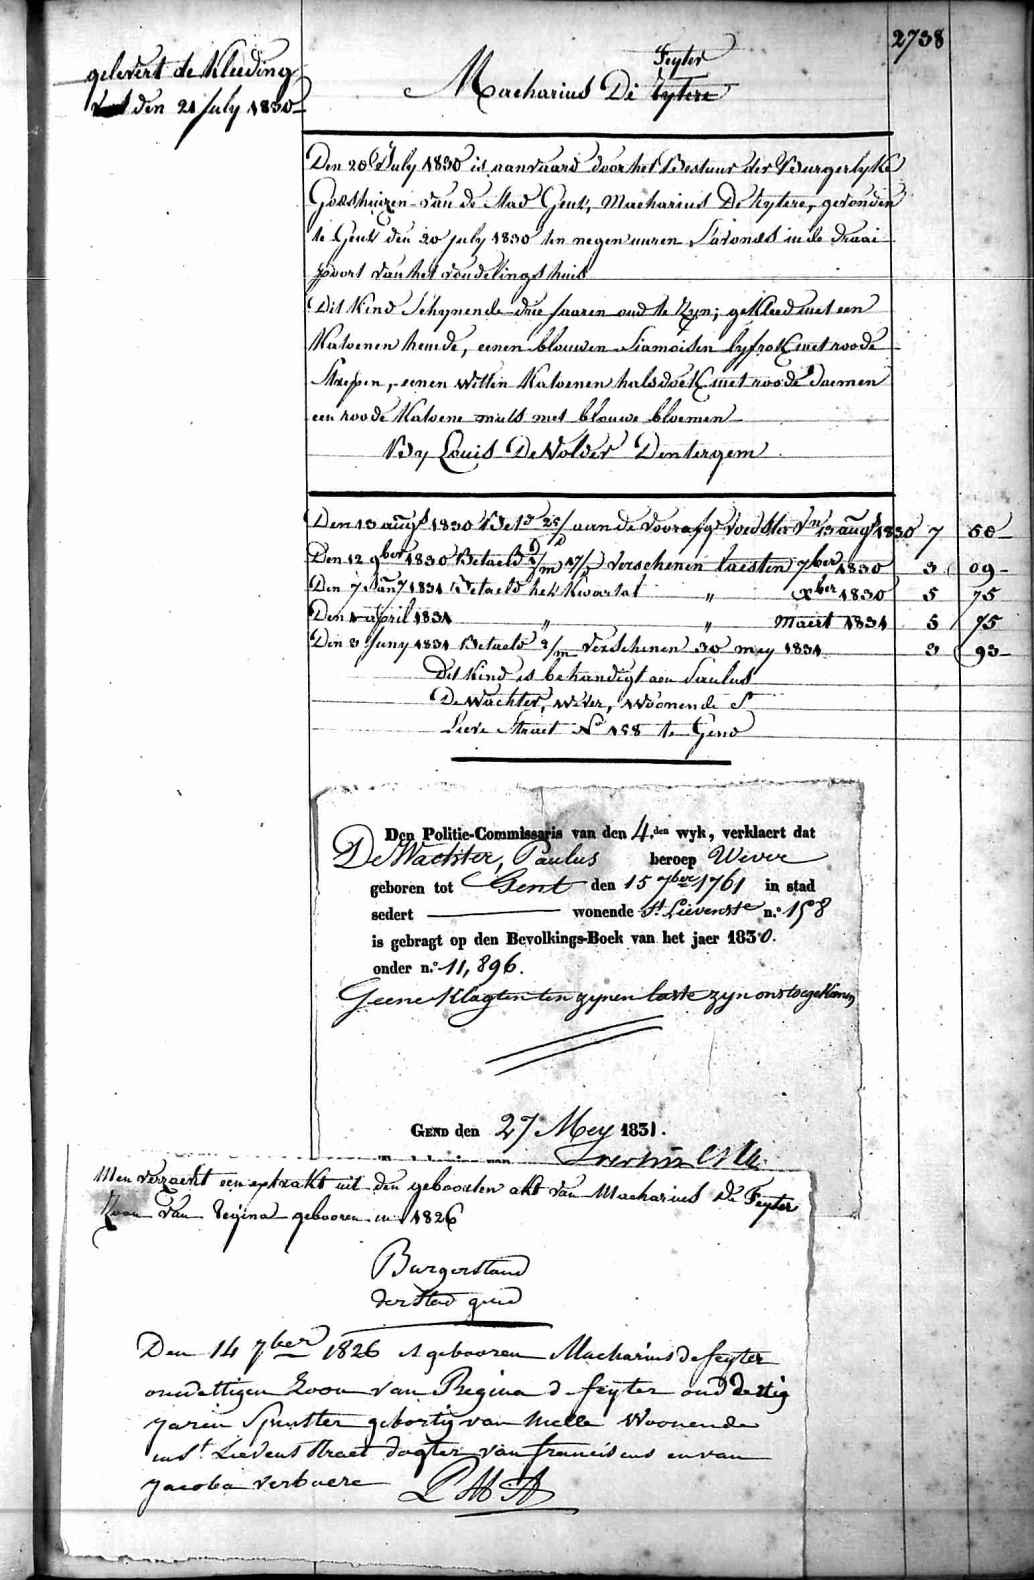 2738
gelevert de Kleeding
den 21 July 1830
Feyter
Macharius De Eytere
Den 20 July 1830 is aanvaard door het Bestuur der Burgerlyke
Godshuizen van de Stad Gent, Macharius De Eytere, gevonden
te Gent den 20 july 1830 ten negen uuren s'avonds in de draai
poort van het vondelingshuis
Dit Kind schynende drie jaaren oud te zyn; gekleed met een
Katoenen hemde, eenen blauwen Siamoisen lyfrok met roode
Streepen, eenen witten Katoenen halsdoek met roode Boemen
een roode Katoene muts met blauwe bloemen
By Louis De Wolder Dentergem
Den 13 augt 1830 Bet 1e 25/ aen de voorafge voedster Dn 13 augt 1830 7 50
Den 12 9ber 1830 Betaeld 1/m 17/D verschenen laesten 7ber 1830 3 09
Den 7 Jany 1831 Betaeld het Kwartal " xber 1830 5 75
Den 1 april 1831 " " Maert 1831 5 75
Den 3 Juny 1831 Betaeld 2/m verschenen 30 mey 1831 3 93
Dit Kind is behandigt aen Paulus
De Wachter, wever, woonende St
Lieve Straet No 158 te Gend
Den Politie-Commissaris van den 4.den wyk, verklaert dat
De Wachter, Paulus beroep Wever
geboren tot Gent den 15 7ber 1761 in stad
sedert wonende St Lievensste n.o 158
is gebragt op den Bevolkings-Boek van het jaer 1830.
onder n.o 11,896.
Geene Klagten ten zynen laste zyn ons toegekomen
Gend den 27 Mey 1831.
Men verzoekt een extrakt uit den geboorten akt van Macharius De Feyter
Zoon van Regina gebooren in 1826
Burgerstand
der Stad gend
Den 14 7ber 1826 is gebooren Macharius de feyter
onwettigen Zoon van Regina d feyter oud dertig
jaren Spinster geboortig van Melle Woonende
in St Lievens Straet dogter van franciscus en van
Jacoba verbaere